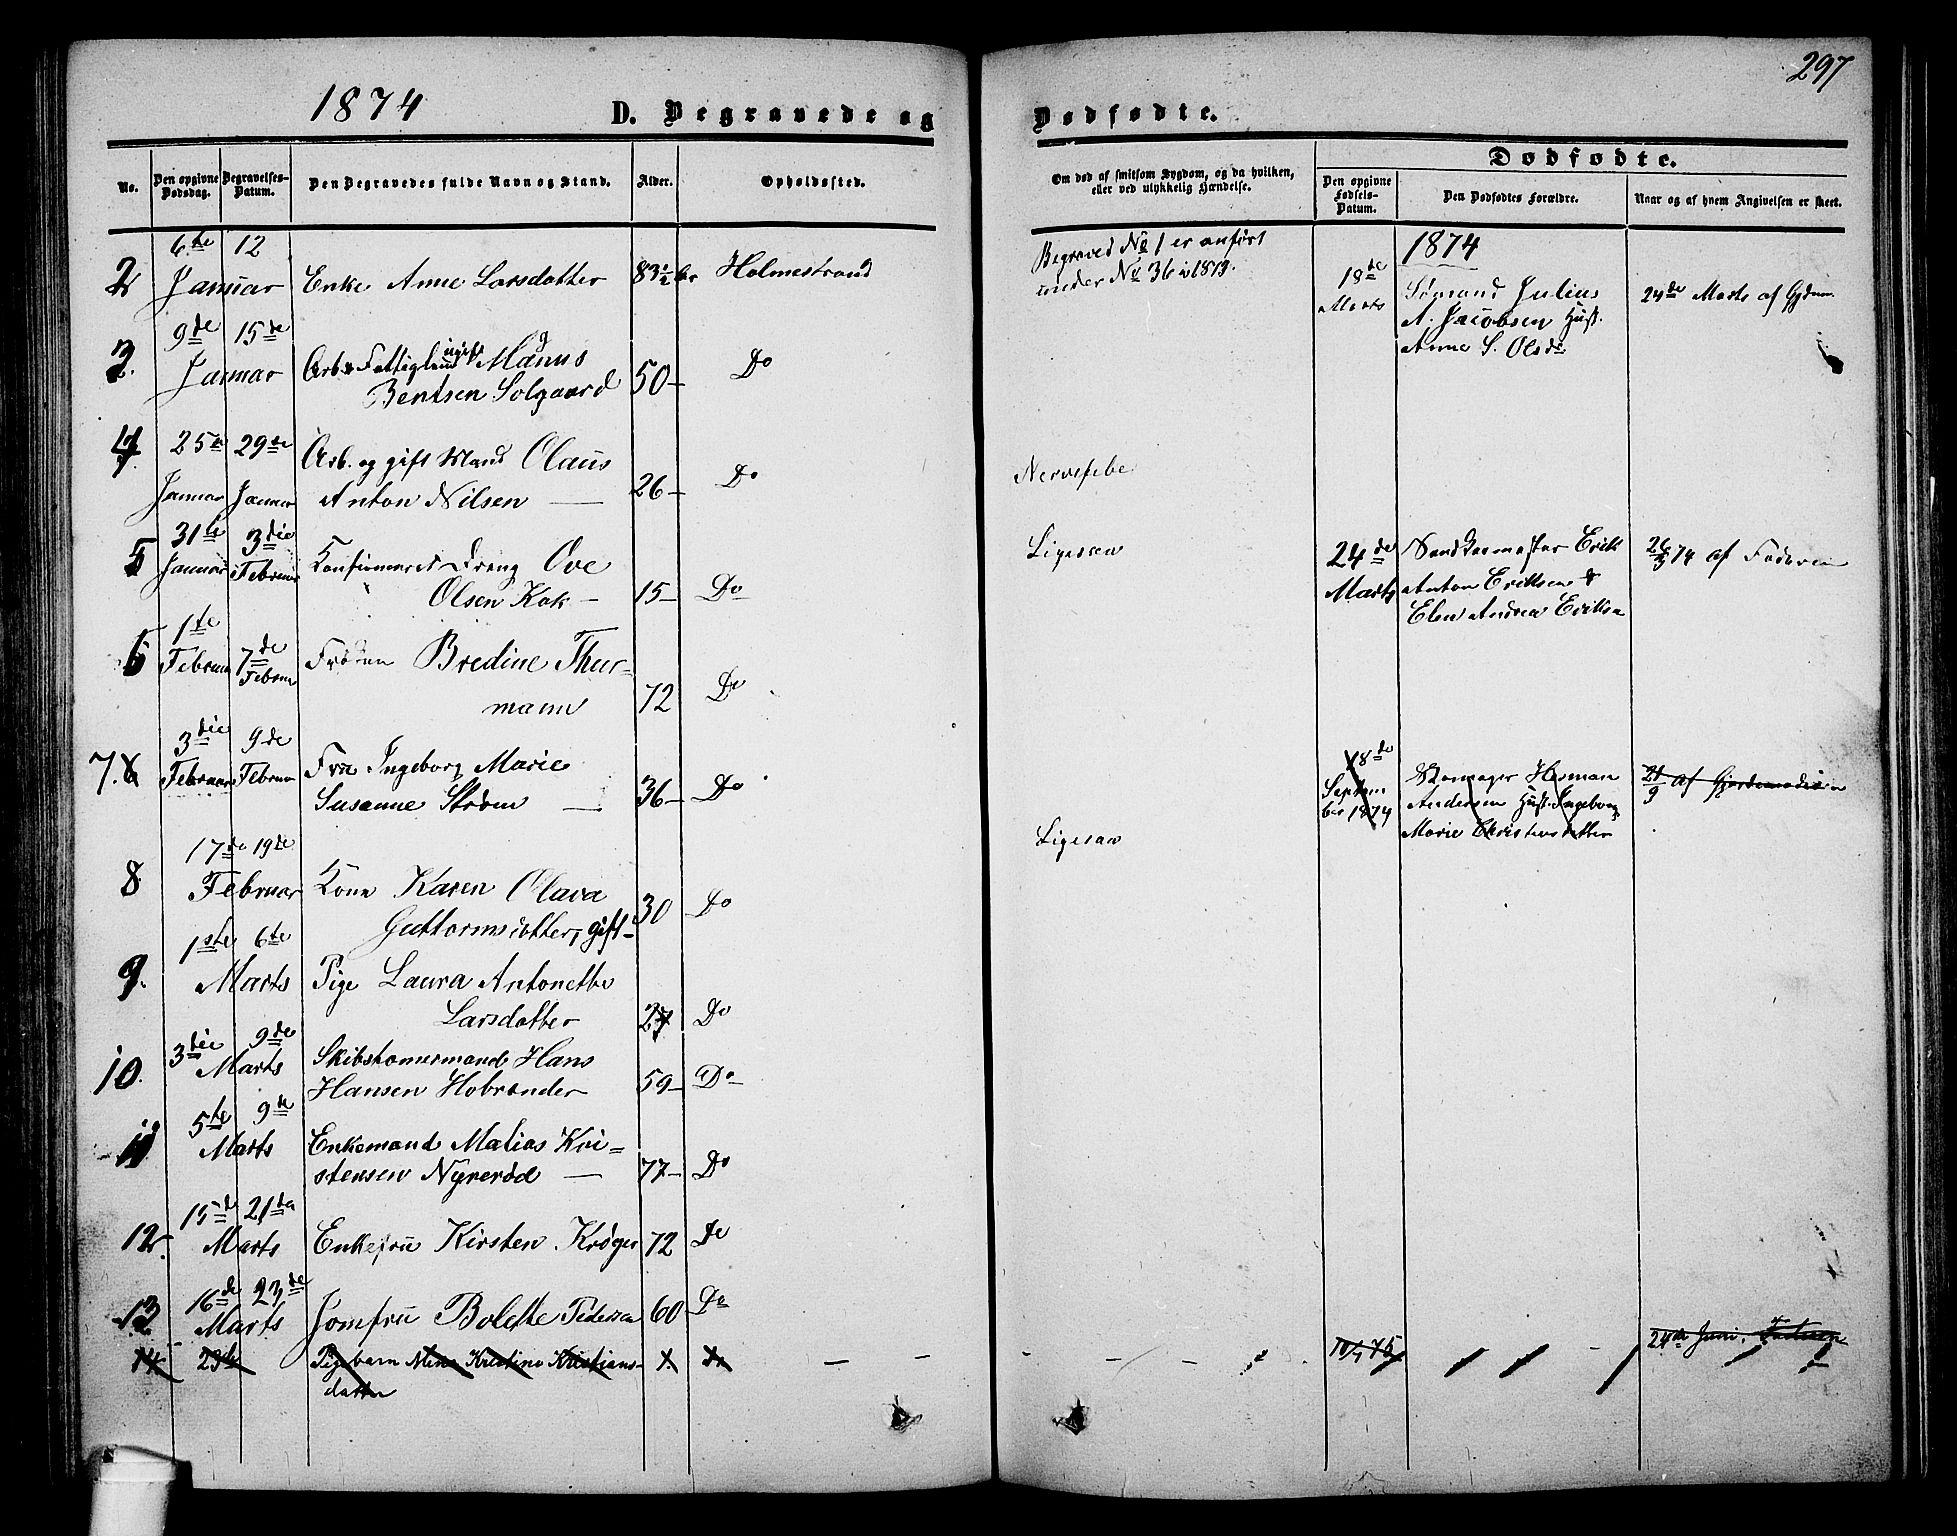 297
1874
D. Begravede og Dødfødte.
No.
Den opgivne Dødsdag.
Begravelses-Datum.
Den Begravedes fulde Navn og Stand.
Alder.
Opholdssted.
Om død af smitsom Sygdom, og da hvilken,
eller ved ulykkelig Hændelse.
Dødfødte.
Den opgivne Fødsels-Datum.
Den Dødfødtes Forældre.
Naar og af hvem Angivelsen er skeet.
2 6te 12 Januar Enke Anne Larsdatter 83½ Holmestrand
Begraved No 1 er anført
under No 36 i 1873.
1874
18de Marts
Sømand Julius
A. Jacobsen Hust.
Anne S. Olsd
24de Marts af
3. 9de 15de Januar Arb. Fattiglem ugift Mand Manus
Bentsen Solgaard 50 Do
4 25de Januar 29de Januar Arb. og gift Mand Olaus
Anton Nilsen 26 Do
Nervefeber
5 31te Januar 3die Februar Konfirmeret Dreng Ove
Olsen Kok 15 Do
Ligesaa
24de Marts
Erik
Anton Eriksen &
Elen Andrea Eriksen
26/3 74 af Faderen
6 1te Februar 7de Februar Frøken Bredine Thur-
mann 72 Do
7. 3die Februar 9de Februar Fru Ingeborg Marie
Susanne Strøm 36 Do
28de Septem
ber 1874
Herman
Andersen Hust. Ingeborg
Marie Christensdatter
21/9 af Gjordemoderen
8 17de 19de Februar Kone Karen Olava
Guttormsdatter, gift 30 Do
Ligesaa
9. 1ste 6te Marts Pige Laura Antonette
Larsdatter 27 Do
10. 3die 9de Marts Skibstømermand Hans
Hansen Hobrænder 59 Do
11 5te 9de Marts Enkemand Matias Kri-
stensen Nyrerød 77 Do
12. 15de 21de Marts Enkefru Kirsten Krøger 72 Do
13 16de 23de Marts Jomfru Bolette Pedersen 60 Do
14 23de Pigebarn Mina Kristine Kristians-
datter Do
24de Juni